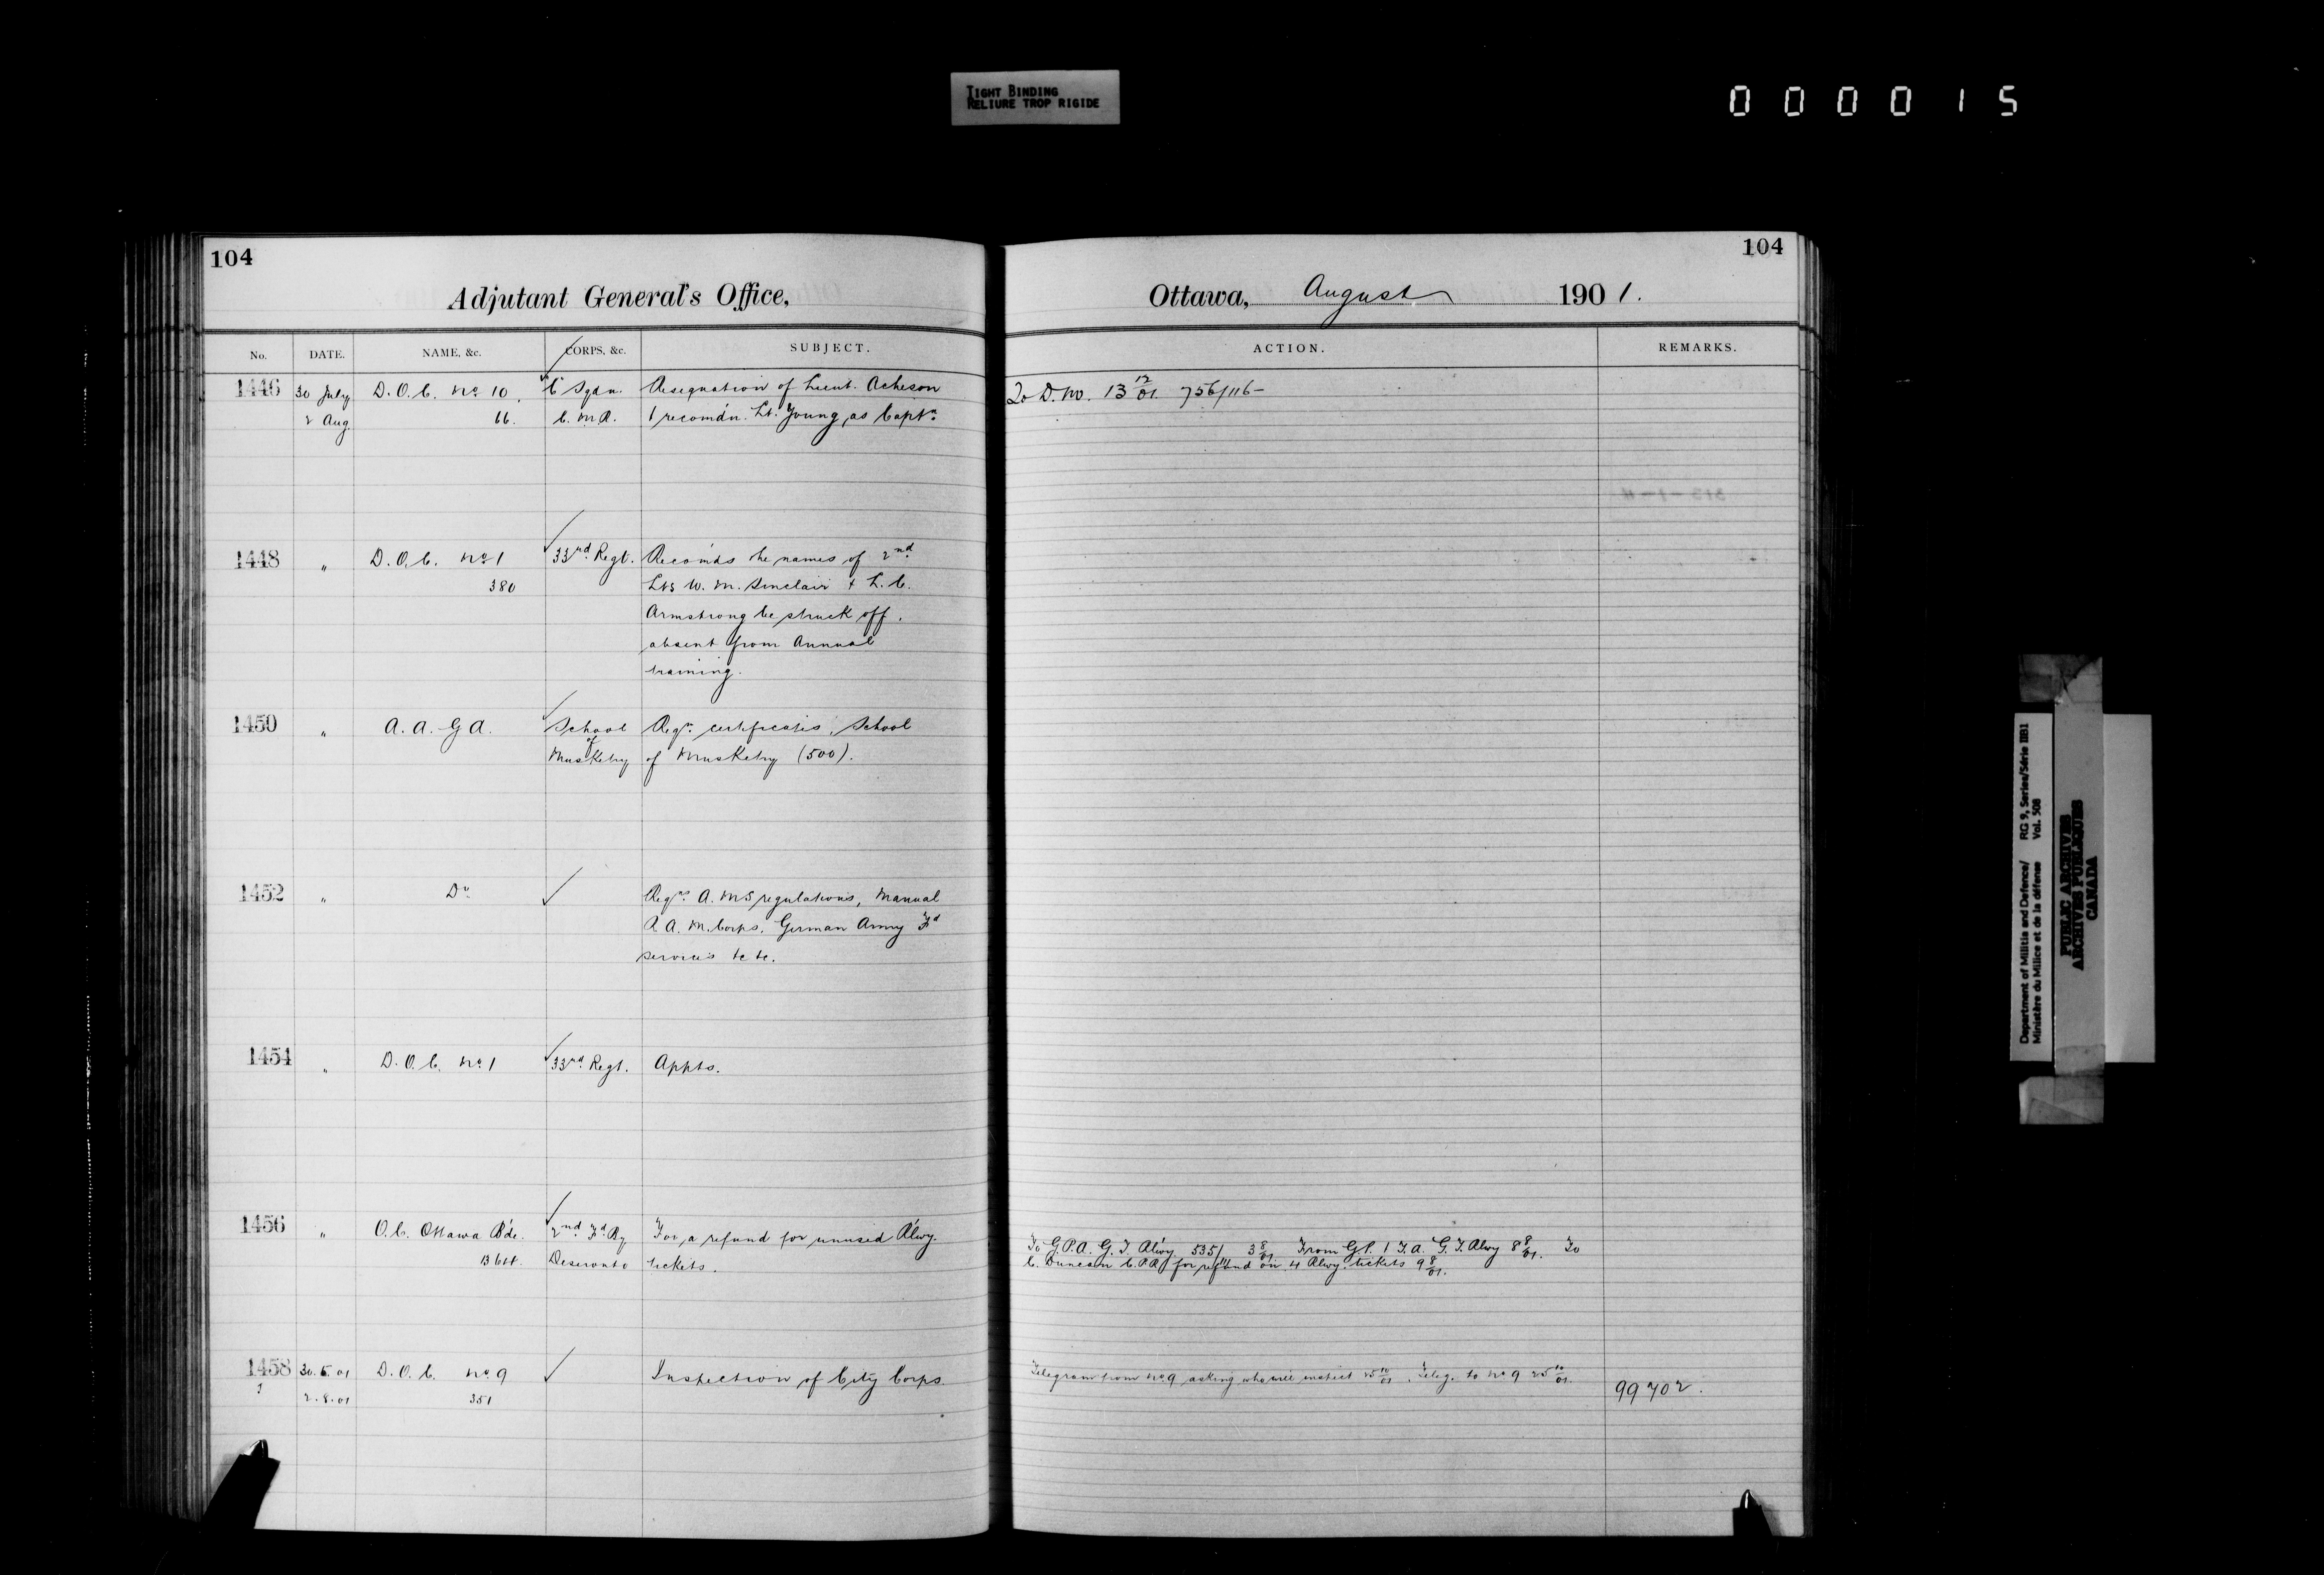 TIGHT BINDING
RELIURE TROP RIGIDE
000015
104
Adjutant General's Office,
No. DATE. NAME, &c. CORPS, &c. SUBJECT.
1446 30 July D.O.C. No 10. C Sqdn. Resignation of Lieut. Acheson
2 Aug. 66. C.M.R. / recomdn. Lt. Young as Captn.
1448 " D.O.C. No 1 33rd Regt. Recomds the names of 2nd
380 Lts W. M. Sinclair & L. C.
Armstrong be struck off.
absent from Annual
training.
1450 " A.A.G.A. School Reqn. certificates, School
of
Musketry of Musketry (500).
1452 " Do. Reqns. A.M.S regulations, Manual
R.A.M.Corps, German Army Fd
services &c &c.
1454 " D.O.C. No 1 33rd Regt. Appts.
1456 " O.C. Ottawa B'de. 2nd Fd. By For a refund for unused R'lwy.
Deseronto tickets.
1458 30.5.01 D.O.C. No 9 Inspection of City Corps.
2.8.01 351
104
Ottawa, August 1901.
ACTION. REMARKS.
To D.M. 13 12/01. 756/116-
To G.P.A. G.T. R'lwy. 535/ 3 8/01. From G.P. / T.A. G.T. Rlwy 8 8/01. To
C. Duncan C.P.R. for refund on 4 Rlwy. tickets 9 8/01.
Telegram from No 9 asking who will inspect 25 10/01. Teleg. to No 9 25 10/01.
99702.
Department of Militia and Defence/ RG 9, Series/Série IIB1
Ministère du Milice et de la défense Vol. 508
PUBLIC ARCHIVES
ARCHIVES PUBLIQUES
CANADA